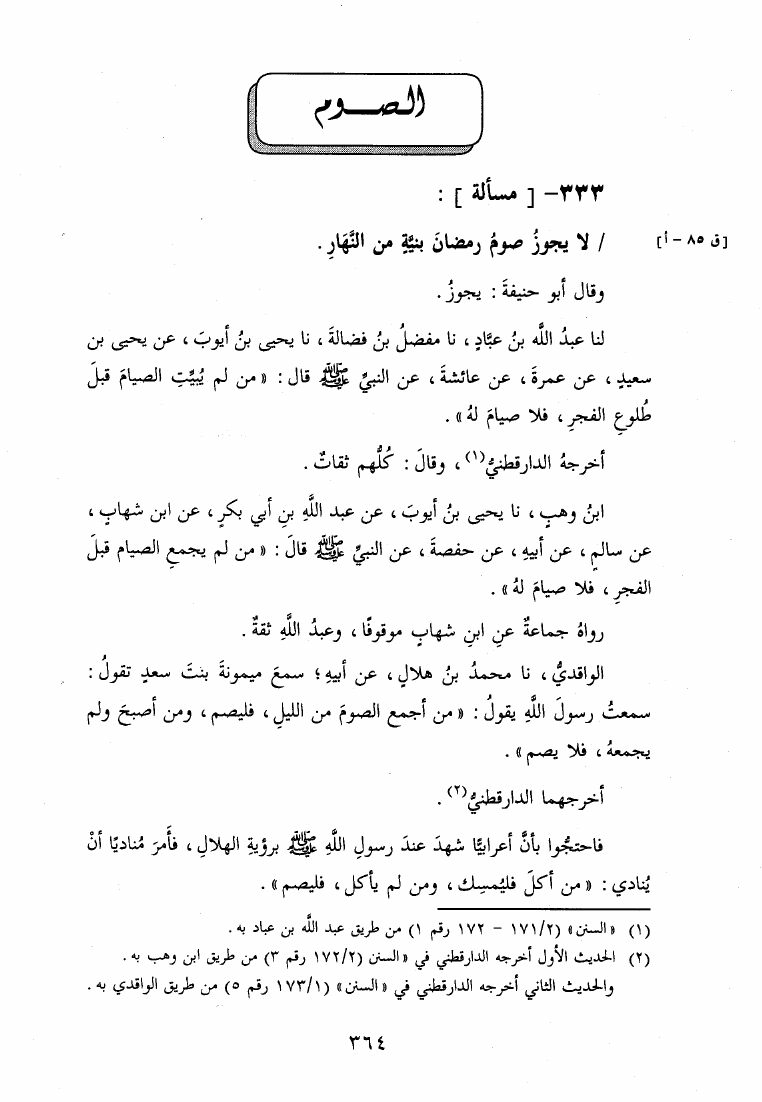 الصـــوم
٣٣٣- [ مسألة ] :
/ لا يجوزُ صومُ رمضانَ بنيَّةٍ من النَّهَارِ . [ق ٨٥ - أ]
وقال أبو حنيفةَ : يجوزُ .
لنا عبدُ اللَّه بنُ عبَّادٍ ، نا مفضلُ بنُ فضالةَ ، نا يحيى بنُ أيوبَ ، عن يحيى بن
سعيدٍ ، عن عمرةَ ، عن عائشةَ ، عن النبيِّ ﷺ قال : « من لم يُبيِّتِ الصيامَ قبلَ
طُلوعِ الفجرِ ، فلا صيامَ لهُ » .
أخرجهُ الدارقطنيُّ(١) ، وقالَ : كُلُّهم ثقاتٌ .
ابنُ وهبٍ ، نا يحيى بنُ أيوبَ ، عن عبد اللَّهِ بنِ أبي بكرٍ ، عن ابن شهابٍ ،
عن سالمٍ ، عن أبيهِ ، عن حفصةَ ، عن النبيِّ ﷺ قالَ : « من لم يجمعِ الصيام قبلَ
الفجرِ ، فلا صيامَ لهُ » .
رواهُ جماعةٌ عنِ ابنِ شهابٍ موقوفًا ، وعبدُ اللَّهِ ثقةٌ .
الواقديُّ ، نا محمدُ بنُ هلالٍ ، عن أبيهِ ؛ سمعَ ميمونةَ بنتَ سعدٍ تقولُ :
سمعتُ رسولَ اللَّهِ يقولُ : « من أجمع الصومَ من الليلِ ، فليصم ، ومن أصبحَ ولم
يجمعهُ ، فلا يصم » .
أخرجهما الدارقطنيُّ(٢) .
فاحتجُّوا بأنَّ أعرابيًّا شهدَ عندَ رسولِ اللَّهِ ﷺ برؤيةِ الهلالِ ، فأَمرَ مُناديًا أنْ
يُنادي : « من أكلَ فليُمسِك ، ومن لم يأكل ، فليصم » .
(١) « السنن » (٢/١٧١ - ١٧٢ رقم ١) من طريق عبد اللَّه بن عباد به .
(٢) الحديث الأول أخرجه الدارقطني في « السنن (٢/١٧٢ رقم ٣) من طريق ابن وهب به .
والحديث الثاني أخرجه الدارقطني في « السنن » (١/١٧٣ رقم ٥) من طريق الواقدي به .
٣٦٤